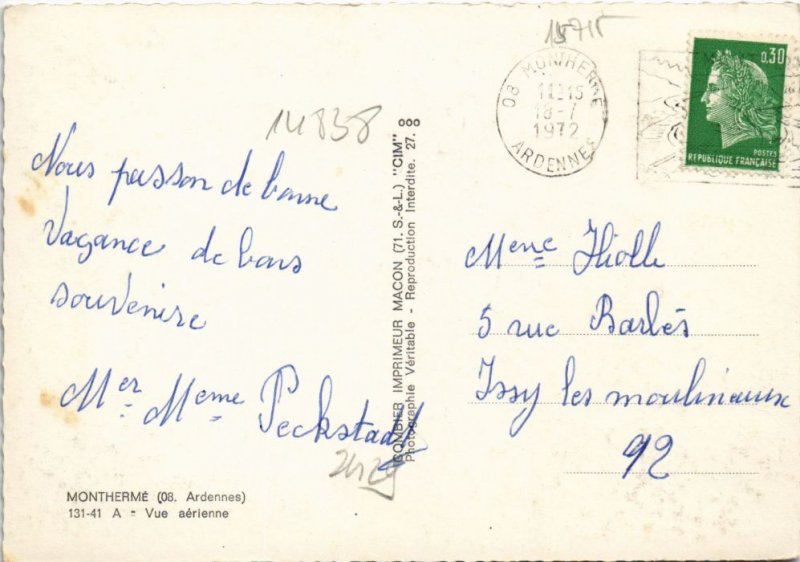 15715
08 MONTHERME
14H15
18-7
1972
ARDENNES
0,30
POSTES
REPUBLIQUE FRANÇAISE
14838
Nous passon de bonne
Vagance de bons
souvenire
Mer Meme Peckstadt
2429
MONTHERMÉ (08. Ardennes)
131-41 A - Vue aérienne
COMBIER IMPRIMEUR MACON (71. S.-&-L.) "CIM"
Photographie Véritable - Reproduction Interdite. 27. ooo
Mme Hiolle
5 rue Barbès
Issy les moulineaux
92